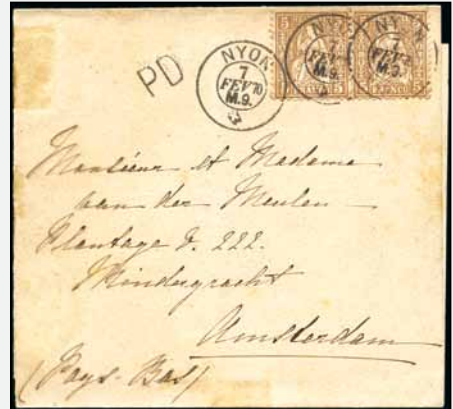 PD
NYON
7
FEV 70
M.9.
NYON
7
FEV 70
M.9.
NYON
7
FEV 70
M.9.
5
5
FRANCO
5
5
Monsieur et Madame
van der Meulen
Plantage D. 222.
Mindergracht
Amsterdam
(Pays-Bas)